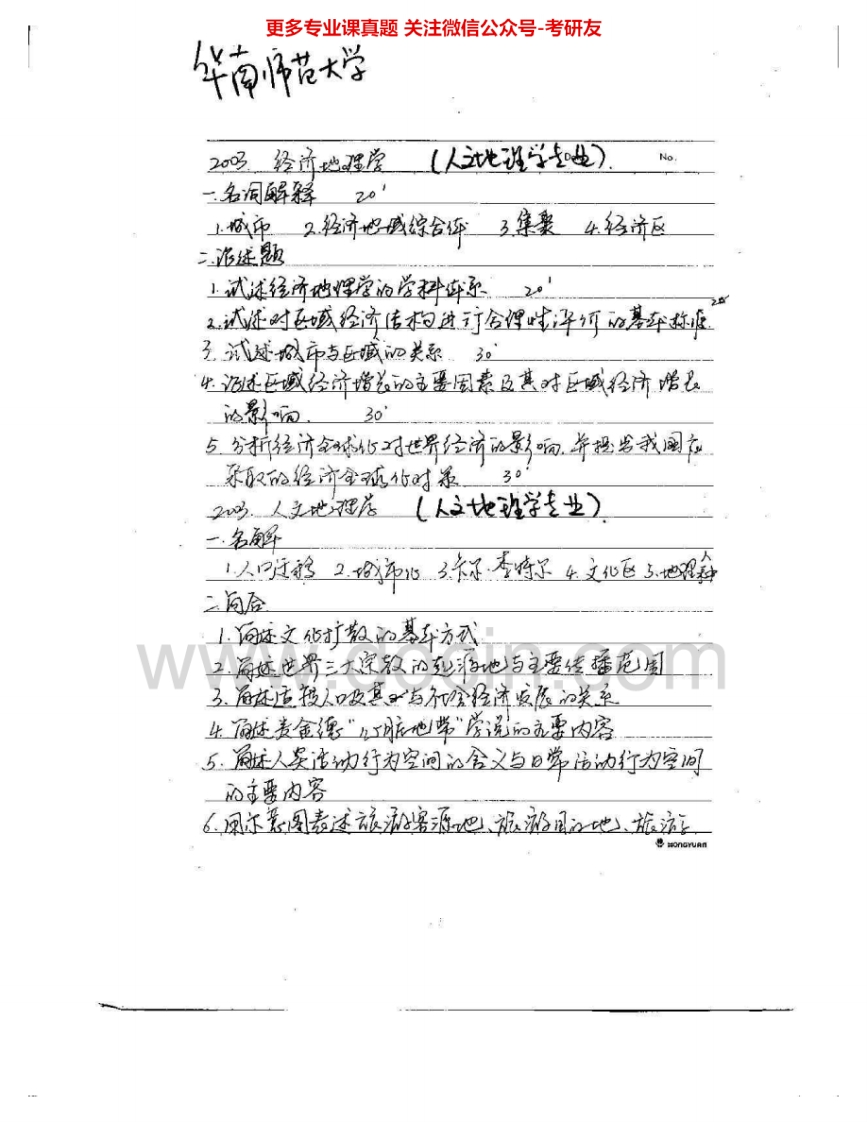 更多专业课真题 关注微信公众号-考研友
华南师范大学
2003. 经济地理学 (人文地理学专业). No.
一.名词解释 20'
1.城市 2.经济地域综合体 3.集聚 4.经济区
二.论述题
1.试述经济地理学的学科体系 20'
2.试述对区域经济结构进行合理性评价的基本标准. 20'
3.试述城市与区域的关系 30'
4.论述区域经济增长的主要因素及其对区域经济增长
的影响. 30'
5.分析经济全球化对世界经济的影响,并提出我国应
采取的经济全球化对策 30'
2003. 人文地理学 (人文地理学专业)
一.名解
1.人口迁移 2.城市化 3.卡尔·李特尔 4.文化区 5.地理人种
二.简答
1.简述文化扩散的基本方式
2.简述世界三大宗教的起源地与主要传播范围
3.简述适度人口及其与社会经济发展的关系
4.简述麦金德"心脏地带"学说的主要内容
5.简述人类活动行为空间的含义与日常活动行为空间
的主要内容
6.用示意图表述旅游客源地、旅游目的地、旅游
HONGYUAN
www.docin.com